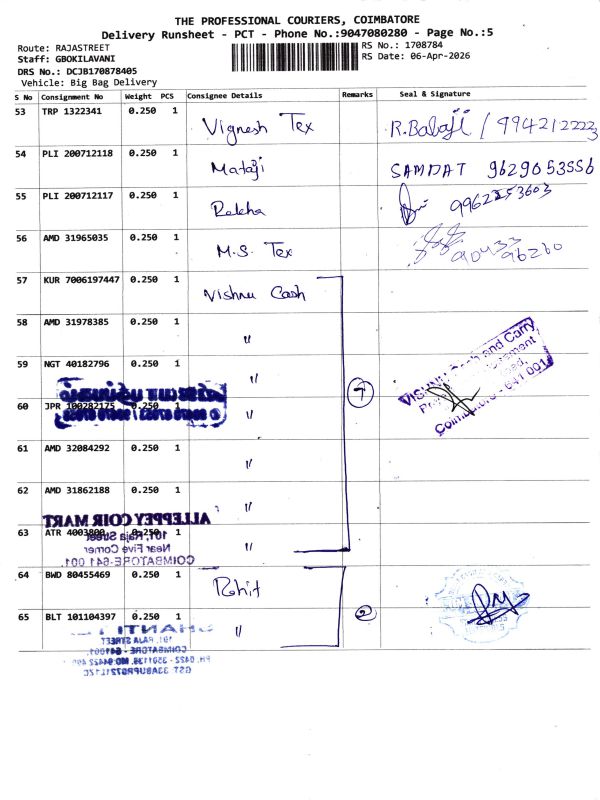 THE PROFESSIONAL COURIERS, COIMBATORE
Delivery Runsheet - PCT - Phone No.:9047080280 - Page No.:5
Route: RAJASTREET
RS No.: 1708784
Staff: GBOKILAVANI
RS Date: 06-Apr-2026
DRS No.: DCJB170878405
Vehicle: Big Bag Delivery
S No Consignment No Weight PCS Consignee Details Remarks Seal & Signature
53 TRP 1322341 0.250 1 Vignesh Tex R.Babaji / 9942122223
54 PLI 200712118 0.250 1 Mataji SAMPAT 9629053556
55 PLI 200712117 0.250 1 Rekha 9962253603
56 AMD 31965035 0.250 1 M.S. Tex 90433 96260
57 KUR 7006197447 0.250 1 Vishnu Cash
58 AMD 31978385 0.250 1 "
59 NGT 40182796 0.250 1 " 7
VISHNU Cash and Carry
Coimbatore - 641 001
60 JPR 100282175 0.250 1 "
61 AMD 32084292 0.250 1 "
62 AMD 31862188 0.250 1 "
ALLEPPEY COIR MART
101, Raja Street
63 ATR 4003800 0.250 1 "
Near Five Corner
COIMBATORE-641 001
64 BWD 80455469 0.250 1 Rohit
65 BLT 101104397 0.250 1 " 2
101, RAJA STREET
COIMBATORE - 641001.